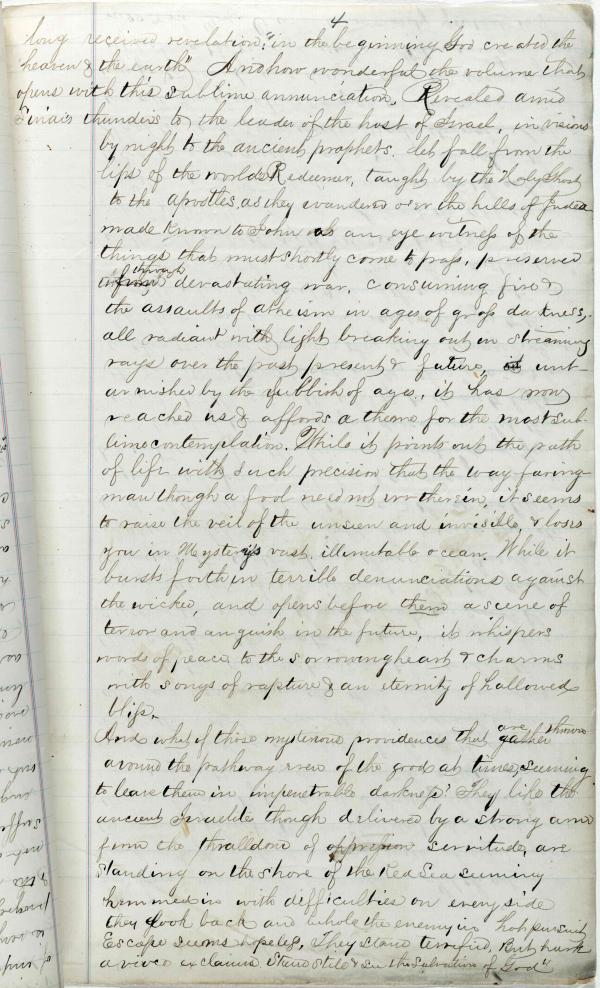 4
long received revelation, "in the beginning God created the
heaven & the earth" And how wonderful the volume that
opens with this sublime annunciation, Revealed amid
Sinais thunders to the leader of the host of Israel, in visions
by night to the ancient prophets. let fall from the
lips of the worlds Redeemer, taught by the Holy Ghost
to the apostles, as they wandered over the hills of Judea
made known to John as an eye witness of the
things that must shortly come to pass, preserved
through devastating war, consuming fire &
the assaults of atheism in ages of gross darkness,
all radiant with light breaking out in streaming
rays over the past present & future, unt-
arnished by the rubbish of ages, it has now
reached us & affords a theme for the most sub-
lime contemplation. While it points out the path
of life with such precision that the way faring
man though a fool need not err therein, it seems
to raise the veil of the unseen and invisible, & loses
you in Mystery's vast, illimitable ocean. While it
bursts forth in terrible denunciations against
the wicked, and opens before them a scene of
terror and anguish in the future, it whispers
words of peace to the sorrowing heart & charms
with songs of rapture & an eternity of hallowed
bliss.
And what of those mysterious providences that gather are thrown
around the pathway even of the good at times, seeming
to leave them in impenetrable darkness? They like the
ancient Israelite though delivered by a strong arm
from the thralldom of oppression servitude, are
standing on the shore of the Red Sea seeming
hemmed in with difficulties on every side
they look back and behold the enemy in hot pursuit
Escape seems hopeless, They stand terrified, But hark
a voice exclaims Stand still & see the Salvation of God"